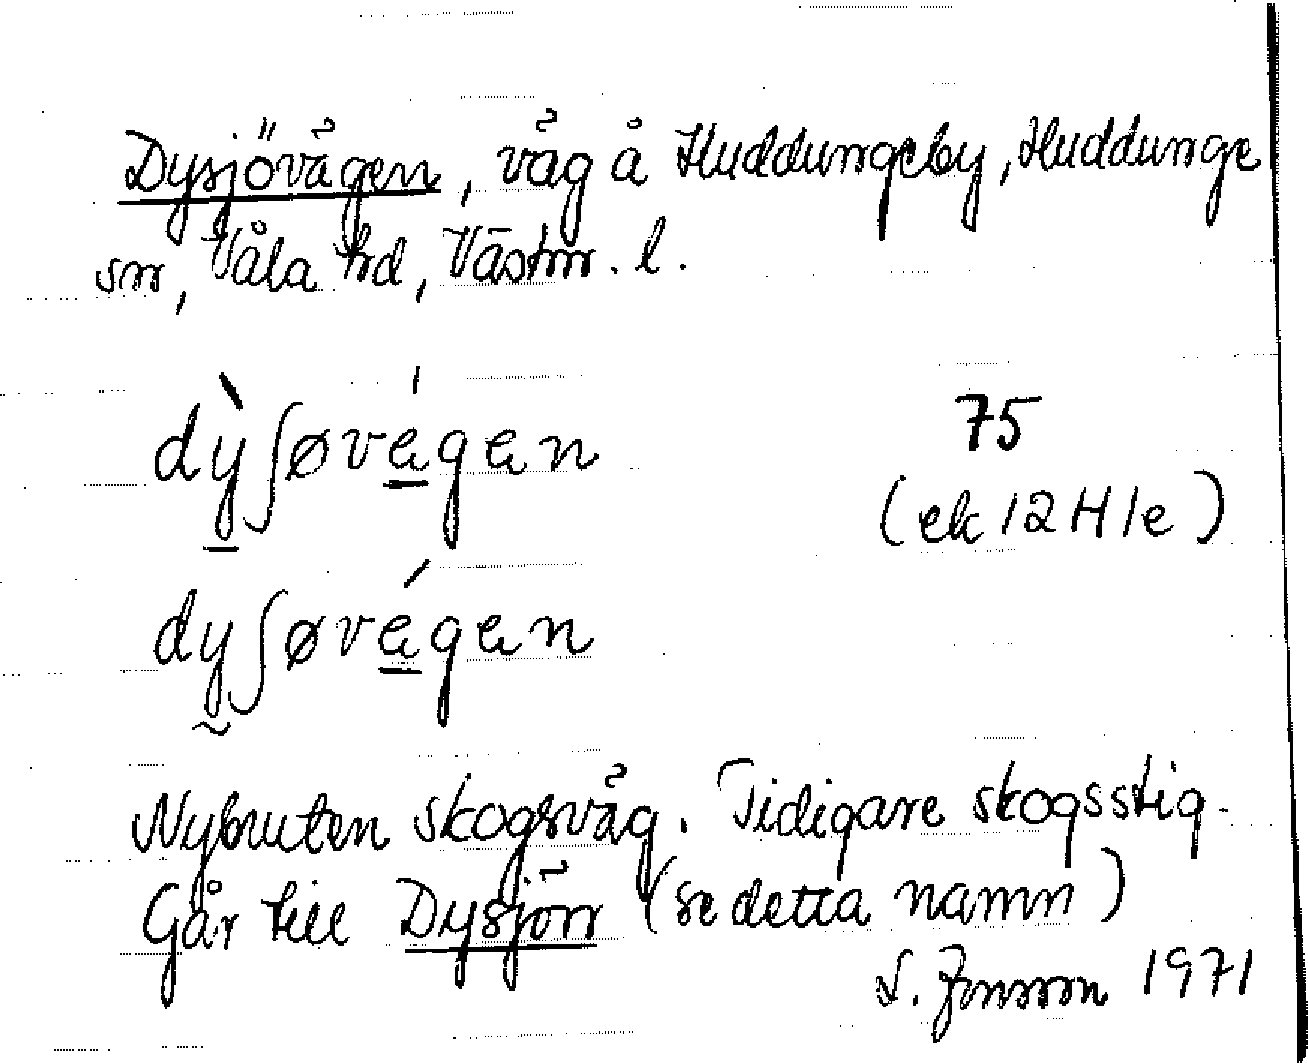 Dysjövägen, väg å Huddungeby, Huddunge
sn, Våla hd, Västm. l.
dỳʃøvágan 75
(ek 12 H 1e)
dyʃøvágan
Nybruten skogsväg. Tidigare skogsstig.
Går till Dysjön (se detta namn)
S. Jonsson 1971